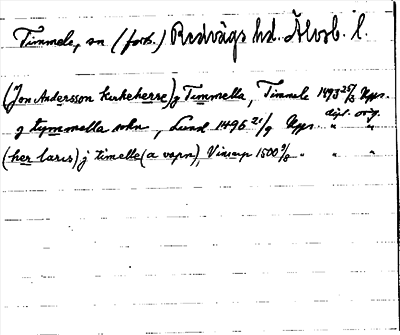 Timmele, sn (forts.) Redvägs hd. Älvsb. l.
(Jon Andersson kirkeherre) j Timmella, Timmele 1493 25/3 Upps. dipl. orig.
j tymmella sokn, Lund 1496 21/9 Upps. " "
(her laris) j timelle (a vapn), Vinsarp 1500 3/8 " " "